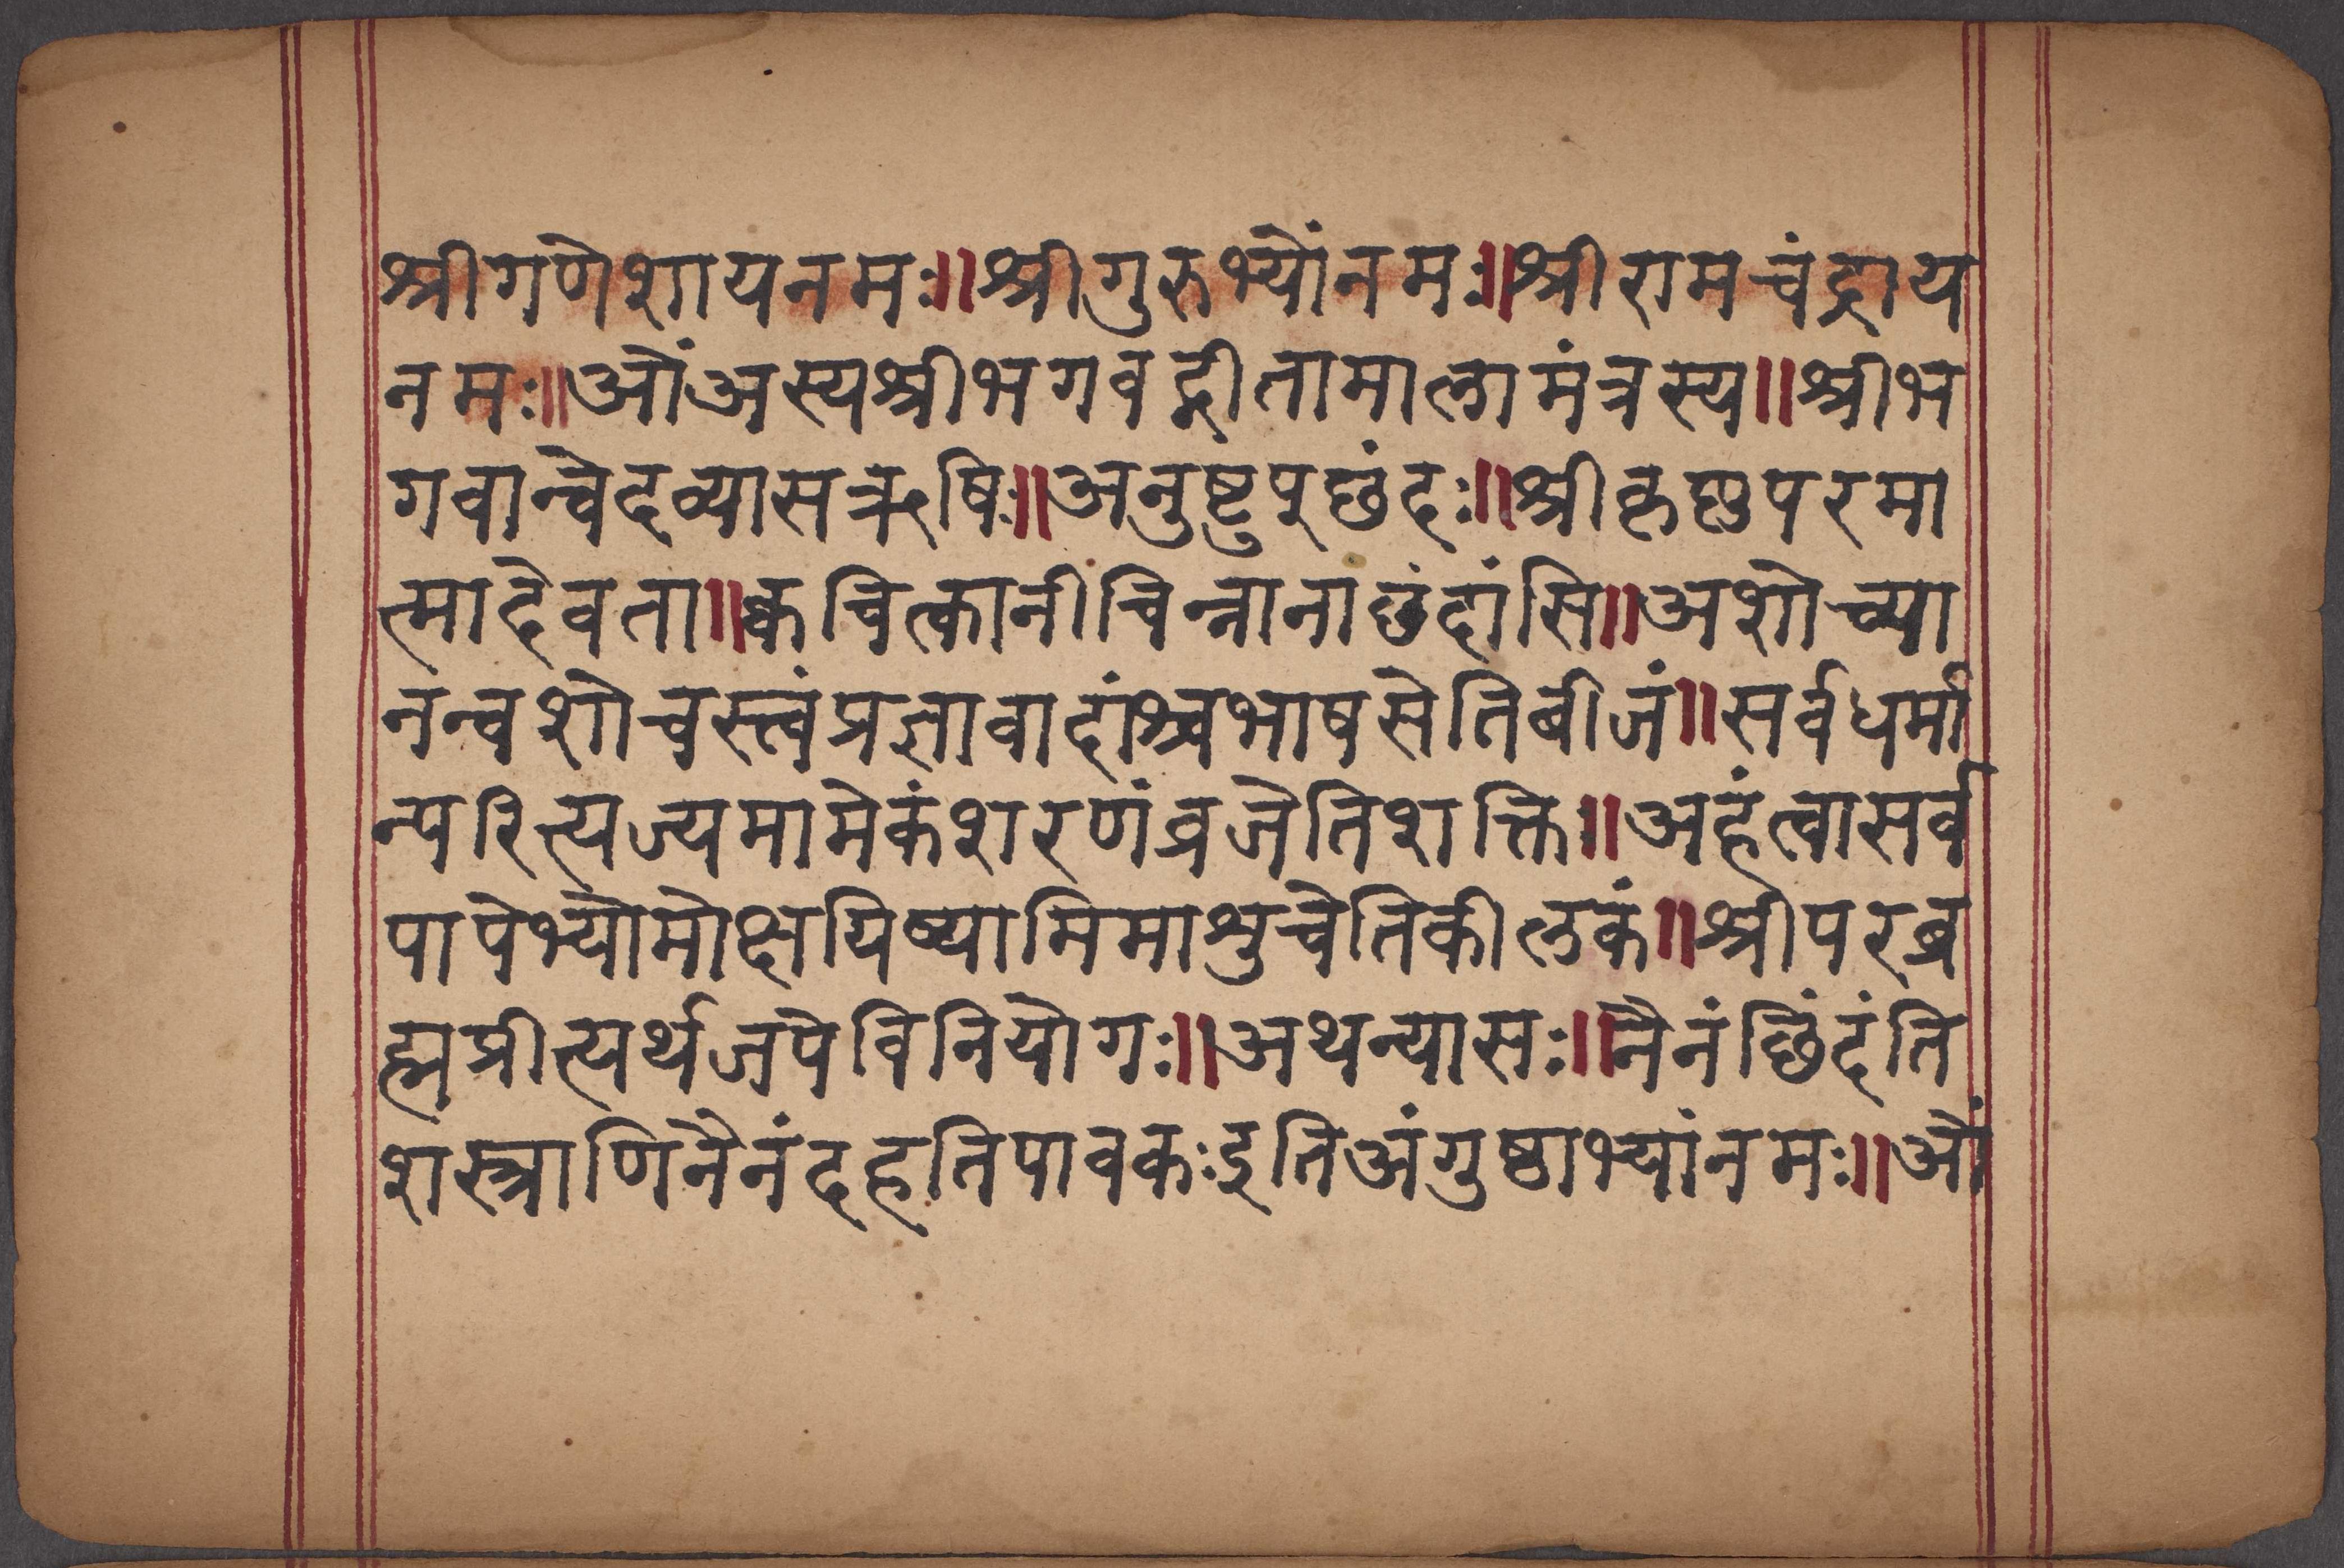 श्रीगणेशायनमः॥श्रीगुरुभ्योंनमः॥श्रीरामचंद्राय
नमः॥ओंअस्यश्रीभगवद्गीतामालामंत्रस्य॥श्रीभ
गवान्वेदव्यासऋषिः॥अनुष्टुप्छंदः॥श्रीकृष्णपरमा
त्मादेवता॥क्वचित्कानीचिन्नानाछंदांसि॥अशोच्या
नन्वशोचस्त्वंप्रज्ञावादांश्चभाषसेतिबीजं॥सर्वधर्मा
न्परित्यज्यमामेकंशरणंव्रजेतिशक्तिः॥अहंत्वासर्व
पापेभ्योमोक्षयिष्यामिमाशुचेतिकीलकं॥श्रीपरब्र
ह्मप्रीत्यर्थजपेविनियोगः॥अथन्यासः॥नैनंछिंदंति
शस्त्राणिनैनंदहतिपावकःइतिअंगुष्ठाभ्यांनमः॥ओं